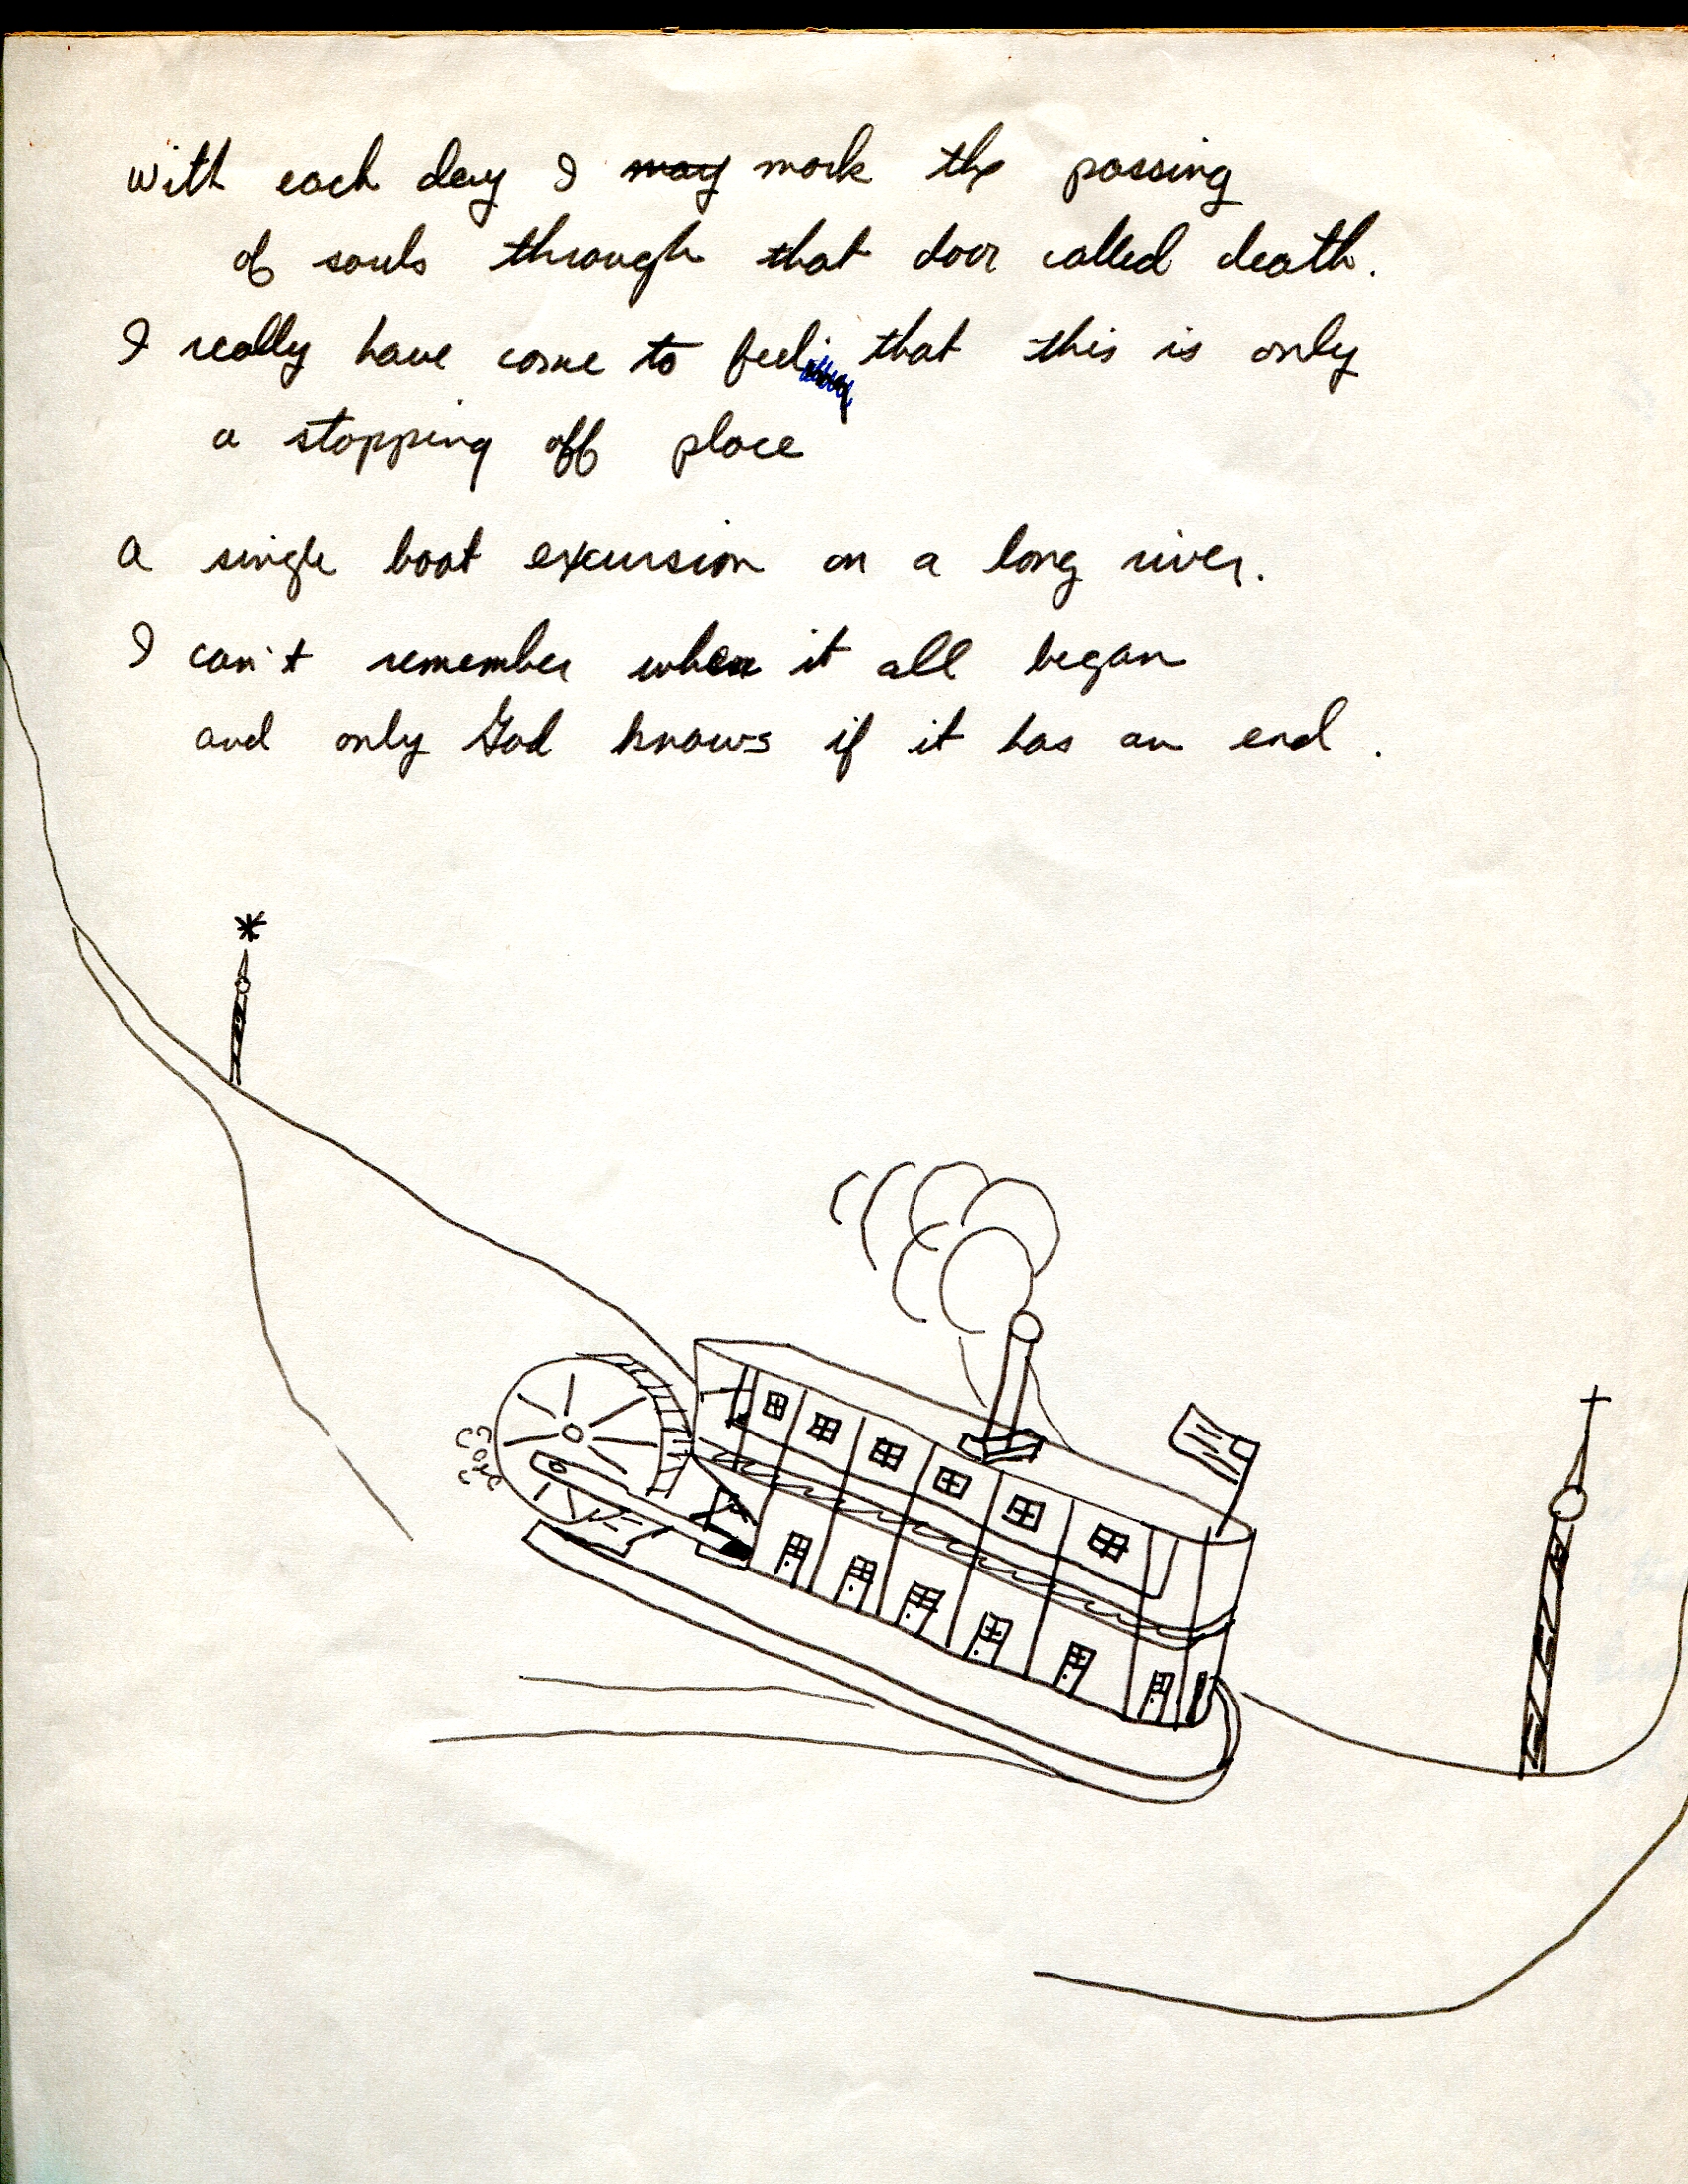 With each day I may mark the passing
of souls through that door called death.
I really have come to feel that this is only
a stopping off place
a single boat excursion on a long river.
I can't remember when it all began
and only God knows if it has an end.